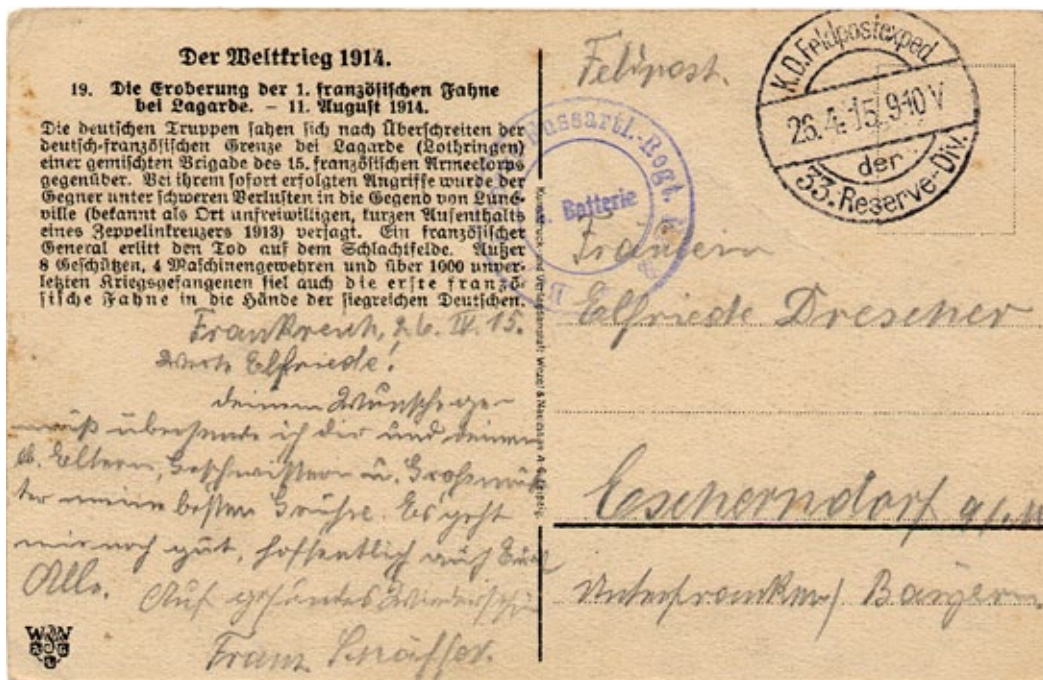 Der Weltkrieg 1914.
19. Die Eroberung der 1. französischen Fahne
bei Lagarde. – 11. August 1914.
Die deutschen Truppen sahen sich nach Überschreiten der
deutsch-französischen Grenze bei Lagarde (Lothringen)
einer gemischten Brigade des 15. französischen Armeekorps
gegenüber. Bei ihrem sofort erfolgten Angriffe wurde der
Gegner unter schweren Verlusten in die Gegend von Luné-
ville (bekannt als Ort unfreiwilligen, kurzen Aufenthalts
eines Zeppelinkreuzers 1913) verjagt. Ein französischer
General erlitt den Tod auf dem Schlachtfelde. Außer
8 Geschützen, 4 Maschinengewehren und über 1000 unver-
letzten Kriegsgefangenen fiel auch die erste franzö-
sische Fahne in die Hände der siegreichen Deutschen.
Frankreich, 26. IV. 15.
Werte Elfriede!
Deinem Wunsche ge-
mäß übersende ich dir und deinen
lb. Eltern, Geschwistern u. Grosmut-
ter meine besten Grüße. Es geht
mir noch gut, hoffentlich auch Euch
Alle. Auf gesundes Wiedersehn
Franz
Feldpost.
K.D. Feldpostexped.
26.4.15. 9-10 V
der
33. Reserve-Div.
Fussartl.-Regt.
Batterie
Fräulein
Elfriede Drescher
Escherndorf a/M
Unterfranken/ Bayern
W N